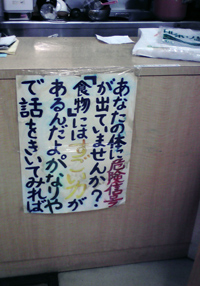 あなたの体に危険信号
が出ていませんか?
『食物』にはすごい力が
あるんだよ。かなりや
で話をきいてみれば